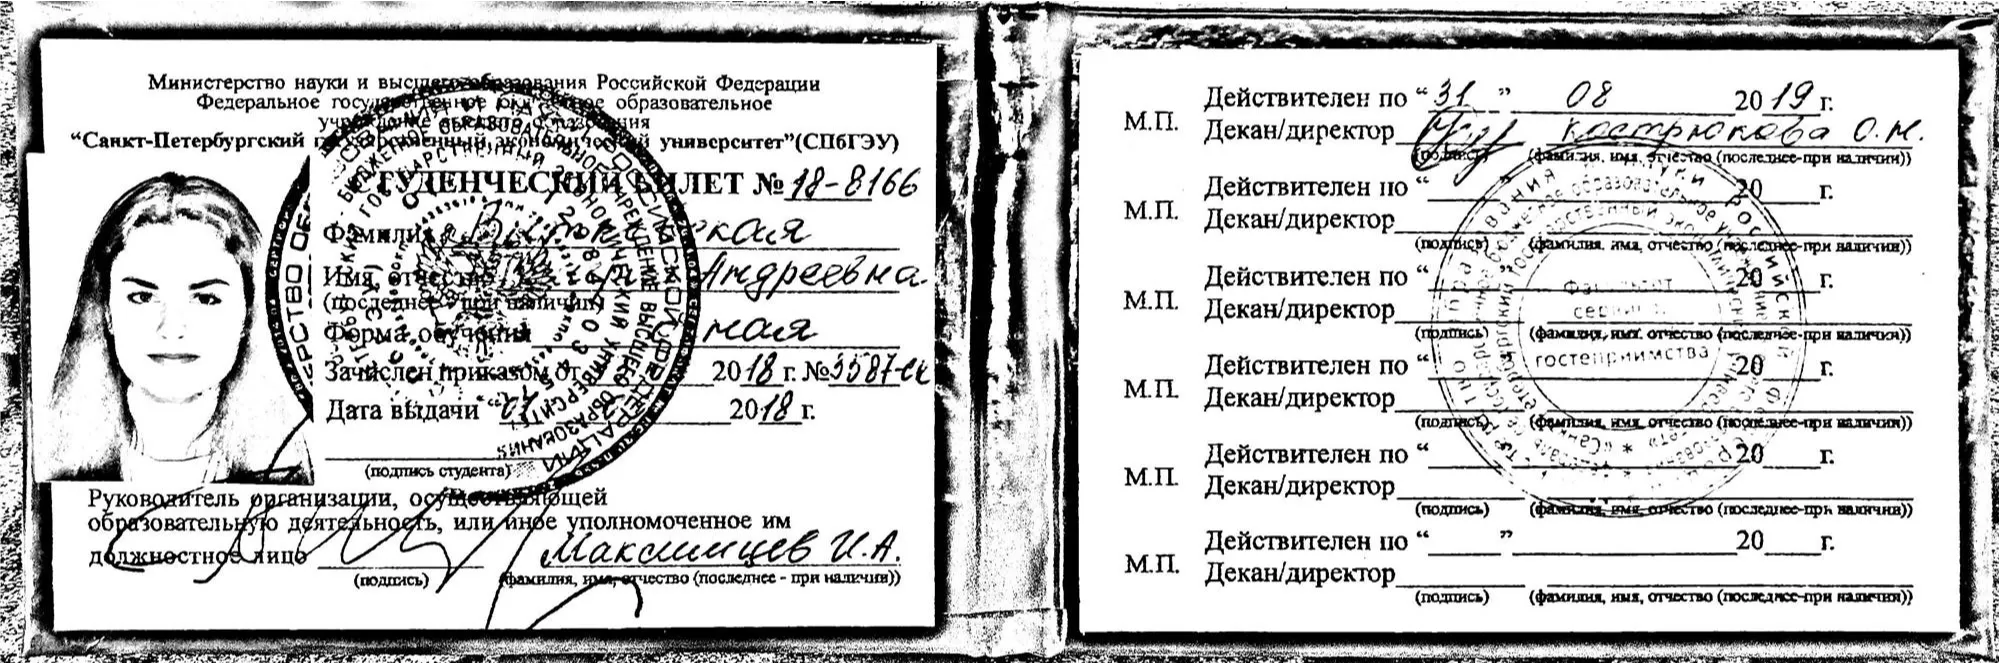 Министерство науки и высшего образования Российской Федерации
Федеральное государственное бюджетное образовательное
учреждение высшего образования
“Санкт-Петербургский государственный экономический университет”(СПбГЭУ)
СТУДЕНЧЕСКИЙ БИЛЕТ № 18-8166
Фамилия
Имя, отчество Андреевна
(последнее - при наличии)
Форма обучения
Зачислен приказом от 2018 г. №
Дата выдачи “ 2018 г.
(подпись студента)
Руководитель организации, осуществляющей
образовательную деятельность, или иное уполномоченное им
должностное лицо Максимцев И.А.
(подпись) (фамилия, имя, отчество (последнее - при наличии))
Действителен по “31” 08 2019 г.
М.П.
Декан/директор Кострюкова О.Н.
(подпись) (фамилия, имя, отчество (последнее-при наличии))
Действителен по “ ” 20 г.
М.П.
Декан/директор
(подпись) (фамилия, имя, отчество (последнее-при наличии))
Действителен по “ ” 20 г.
М.П.
Декан/директор
(подпись) (фамилия, имя, отчество (последнее-при наличии))
Действителен по “ ” 20 г.
М.П.
Декан/директор
(подпись) (фамилия, имя, отчество (последнее-при наличии))
Действителен по “ ” 20 г.
М.П.
Декан/директор
(подпись) (фамилия, имя, отчество (последнее-при наличии))
Действителен по “ ” 20 г.
М.П.
Декан/директор
(подпись) (фамилия, имя, отчество (последнее-при наличии))
Факультет
сервиса
гостеприимства